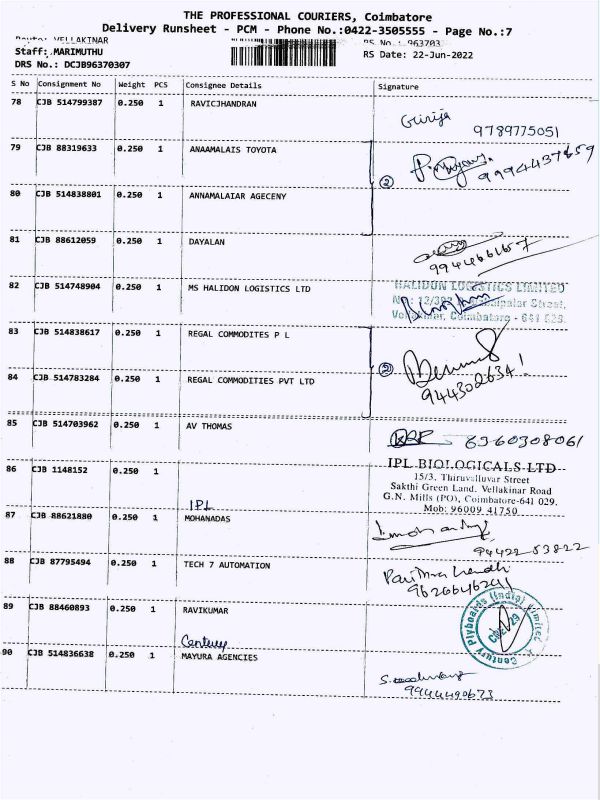 THE PROFESSIONAL COURIERS, Coimbatore
Delivery Runsheet - PCM - Phone No.:0422-3505555 - Page No.:7
Staff: MARIMUTHU
RS No.: 963703
DRS No.: DCJB96370307
RS Date: 22-Jun-2022
S No Consignment No Weight PCS Consignee Details Signature
78 CJB 514799387 0.250 1 RAVICJHANDRAN
Girija
9789775051
79 CJB 88319633 0.250 1 ANAAMALAIS TOYOTA
2
80 CJB 514838801 0.250 1 ANNAMALAIAR AGECENY
81 CJB 88612059 0.250 1 DAYALAN
9944661657
82 CJB 514748904 0.250 1 MS HALIDON LOGISTICS LTD
HALIDON LOGISTICS LIMITED
Street,
Coimbatore - 641 029.
83 CJB 514838617 0.250 1 REGAL COMMODITES P L
2
84 CJB 514783284 0.250 1 REGAL COMMODITIES PVT LTD
85 CJB 514703962 0.250 1 AV THOMAS
8360308061
86 CJB 1148152 0.250 1
IPL
IPL BIOLOGICALS LTD
15/3, Thiruvalluvar Street
Sakthi Green Land, Vellakinar Road
G.N. Mills (PO), Coimbatore-641 029.
Mob: 96009 41750
87 CJB 88621880 0.250 1 MOHANADAS
94422 53822
88 CJB 87795494 0.250 1 TECH 7 AUTOMATION
9626646241
89 CJB 88460893 0.250 1 RAVIKUMAR
Century
Century Plyboards (India) Limited
90 CJB 514836638 0.250 1 MAYURA AGENCIES
9944490673